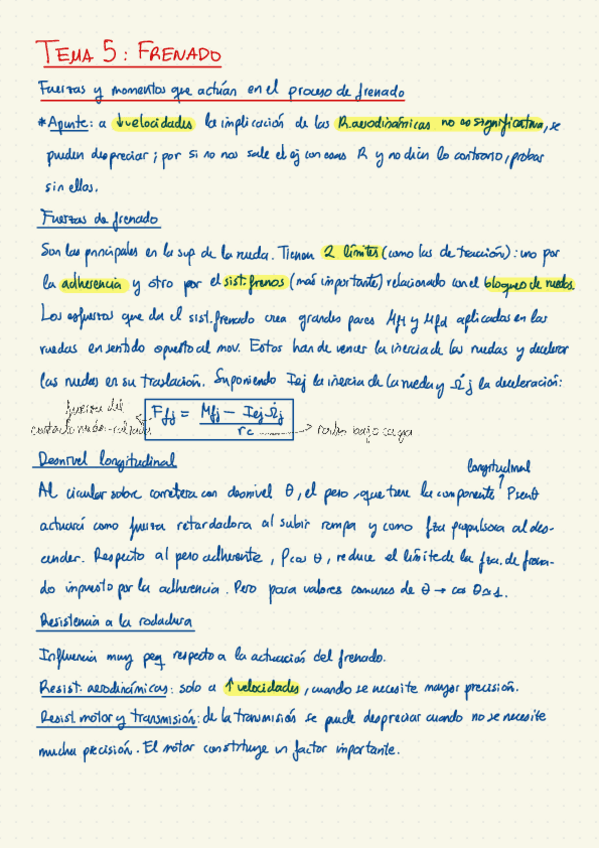 TEMA 5: FRENADO
Fuerzas y momentos que actúan en el proceso de frenado
* Apunte: a ↓velocidades la implicación de las R.aerodinámicas no es significativa, se
pueden despreciar; por si no nos sale el ej con esas R y no dicen lo contrario, probar
sin ellas.
Fuerzas de frenado
Son las principales en la sup de la rueda. Tienen 2 límites (como las de tracción): uno por
la adherencia y otro por el sist.frenos (más importante) relacionado con el bloqueo de ruedas.
Los esfuerzos que da el sist.frenado crea grandes pares Mf1 y Mfd aplicadas en las
ruedas en sentido opuesto al mov. Estos han de vencer la inercia de las ruedas y decelerar
las ruedas en su traslación. Suponiendo Iej la inercia de la rueda y Ω̇j la deceleración:
fuerza del
contacto rueda-calzada
Ffj = (Mfj - Iej Ω̇j) / rc
radio bajo carga
Desnivel longitudinal
longitudinal
Al circular sobre carretera con desnivel θ, el peso, que tiene la componente Psenθ
actuará como fuerza retardadora al subir rampa y como fza propulsora al des-
cender. Respecto al peso adherente, Pcos θ, reduce el límite de la fza. de frena-
do impuesto por la adherencia. Pero para valores comunes de θ → cos θ≃1.
Resistencia a la rodadura
Influencia muy peq respecto a la actuación del frenado.
Resist. aerodinámicas: solo a ↑velocidades, cuando se necesite mayor precisión.
Resist motor y transmisión: de la transmisión se puede despreciar cuando no se necesite
mucha precisión. El motor constituye un factor importante.